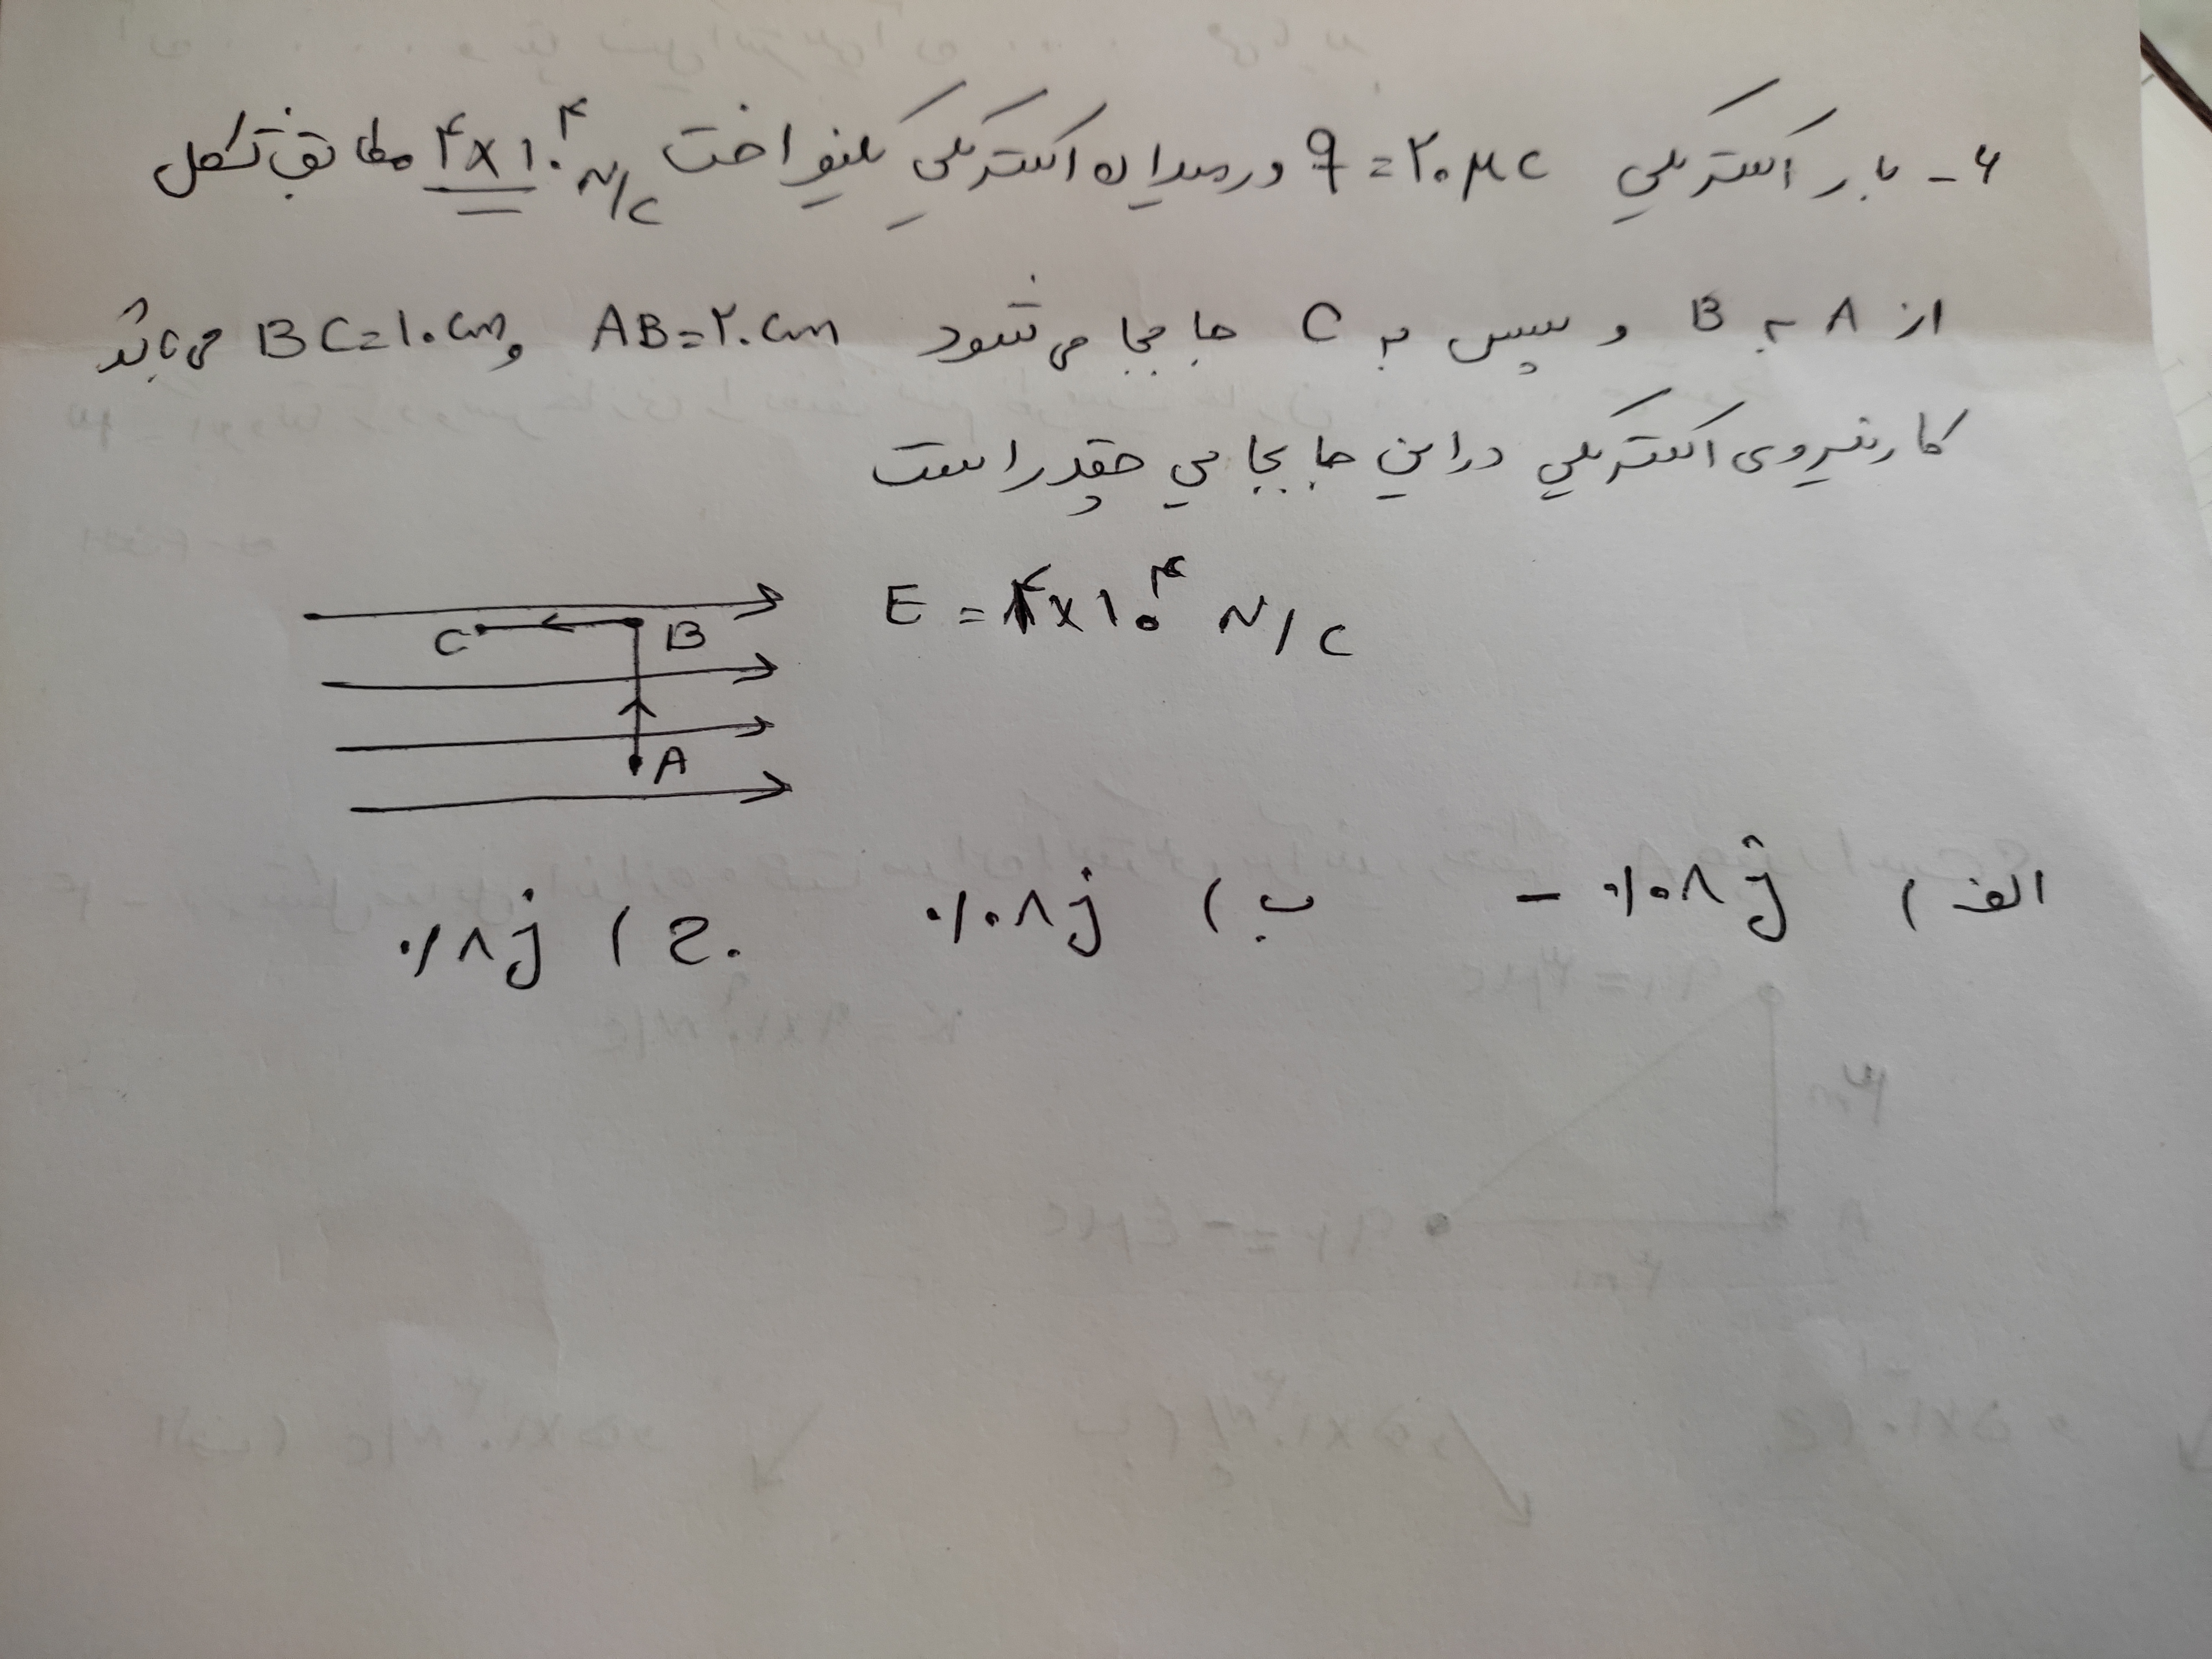 ۶- بار الکتریکی q = ۲۰ μC در میدان الکتریکی یکنواخت ۴×۱۰^۴ N/C مطابق شکل
از A به B و سپس به C جابجا می شود AB=۲۰cm و BC=۱۰cm می باشد
کار نیروی الکتریکی در این جابجایی چقدر است
E = ۴×۱۰^۴ N/C
C B
A
الف) -۰/۰۸ j ب) ۰/۰۸ j ج) ۰/۸ j